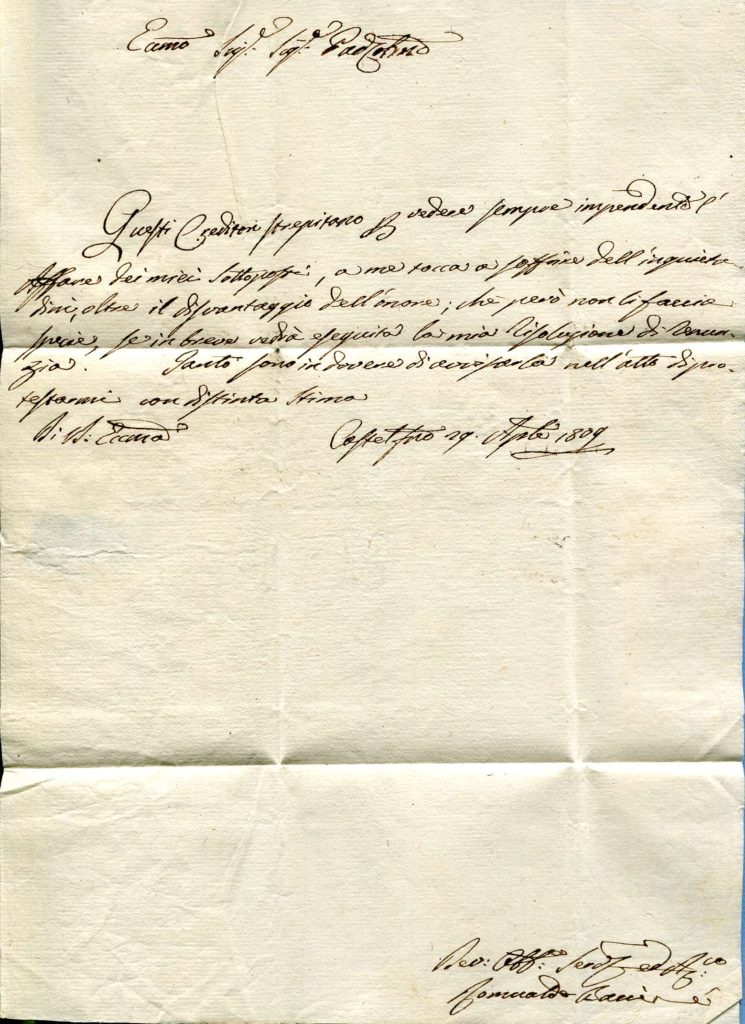 Eccmo Sig.e Sig.e Padrone
Questi Creditori strepitano p vedere sempre impendente l'
Affare dei miei Sottoposti, a me tocca a soffrire dell'inquietu-
dini, oltre il disvantaggio dell'onore; che però non li faccia
specie, se in breve vedrà eseguita la mia Risoluzione di Renun-
zia. Tanto sono in dovere di avvisarla nell'atto di pro-
testarmi con distinta stima
Di V: Eccmza
Castel fno 29. Aple 1809
Dev: Obb: Serv ed
Romualdo